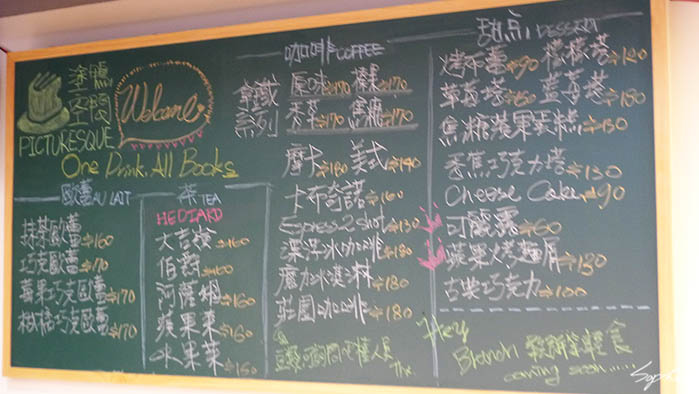 塗鴨
空間
PICTURESQUE
Welcome
One Drink, All Books
歐蕾 AU LAIT
抹茶歐蕾 160
巧克歐蕾 170
蘋果巧克歐蕾 170
巧克歐蕾 170
茶 TEA
HEDIARD
大吉嶺 160
伯爵 160
阿薩姆 160
蘋果茶 160
水果茶 160
咖啡 COFFEE
拿鐵
系列
原味 170 榛果 170
170 焦糖 170
摩卡 180 美式 140
卡布奇諾 160
Espresso 2 shot 130
冰咖啡 180
魔力冰淇淋 180
莊園咖啡 180
甜點 DESSERT
烤布蕾 90 檸檬塔 120
草莓塔 藍莓塔 180
焦糖蘋果蛋糕 130
香蕉巧克力塔 130
Cheese Cake 90
可麗露 60
蘋果烤麵屏 130
古典巧克力 100
Hey
Brunch 輕食
coming soon......